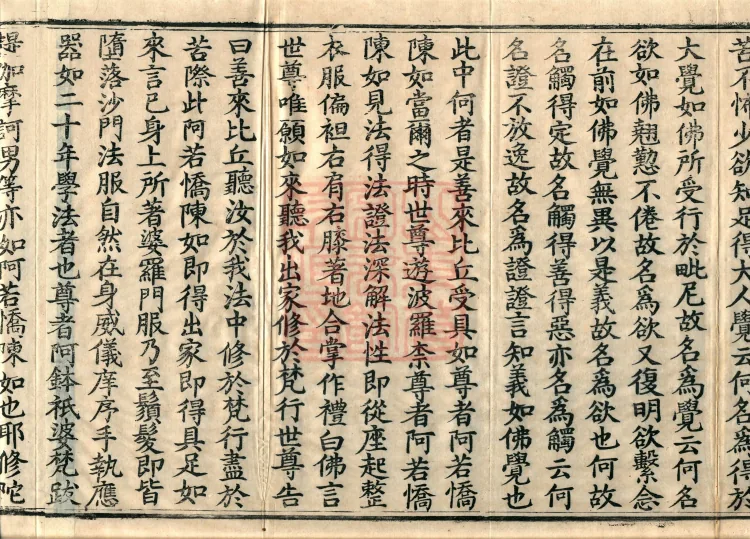 苦不憍少欲知足得大人覺云何名為得於
大覺如佛所受行於毗尼故名為覺云何名
欲如佛翹懃不倦故名為欲又復明欲繫念
在前如佛覺無異以是義故名為欲也何故
名觸得定故名觸得善得惡亦名為觸云何
名證不放逸故名為證證言知義如佛覺也
此中何者是善來比丘受具如尊者阿若憍
陳如當爾之時世尊遊波羅柰尊者阿若憍
陳如見法得法證法深解法性即從座起整
衣服偏袒右肩右膝著地合掌作禮白佛言
世尊唯願如來聽我出家修於梵行世尊告
曰善來比丘聽汝於我法中修於梵行盡於
苦際此阿若憍陳如即得出家即得具足如
來言已身上所著婆羅門服乃至鬚髮即皆
墮落沙門法服自然在身威儀庠序手執應
器如二十年學法者也尊者阿鉢祇婆梵跋
提伽摩訶男等亦如阿若憍陳如也耶修陀